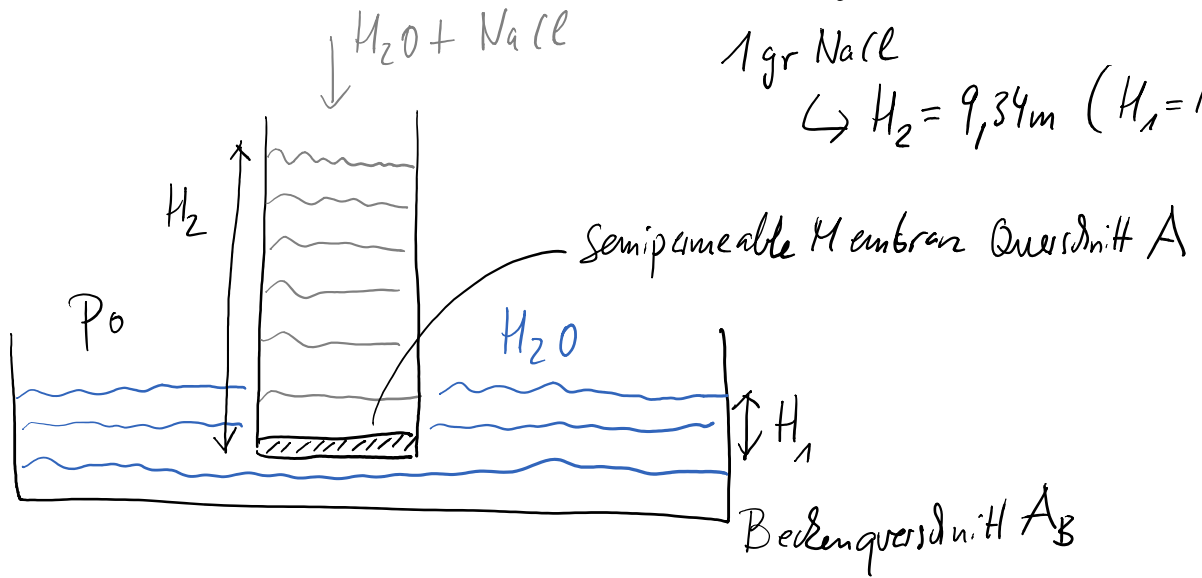 H₂O + NaCl
1 gr NaCl
↳ H₂ = 9,34m (H₁ =
H₂
semipermeable Membran Querschnitt A
P₀
H₂O
H₁
Beckenquerschnitt A_B